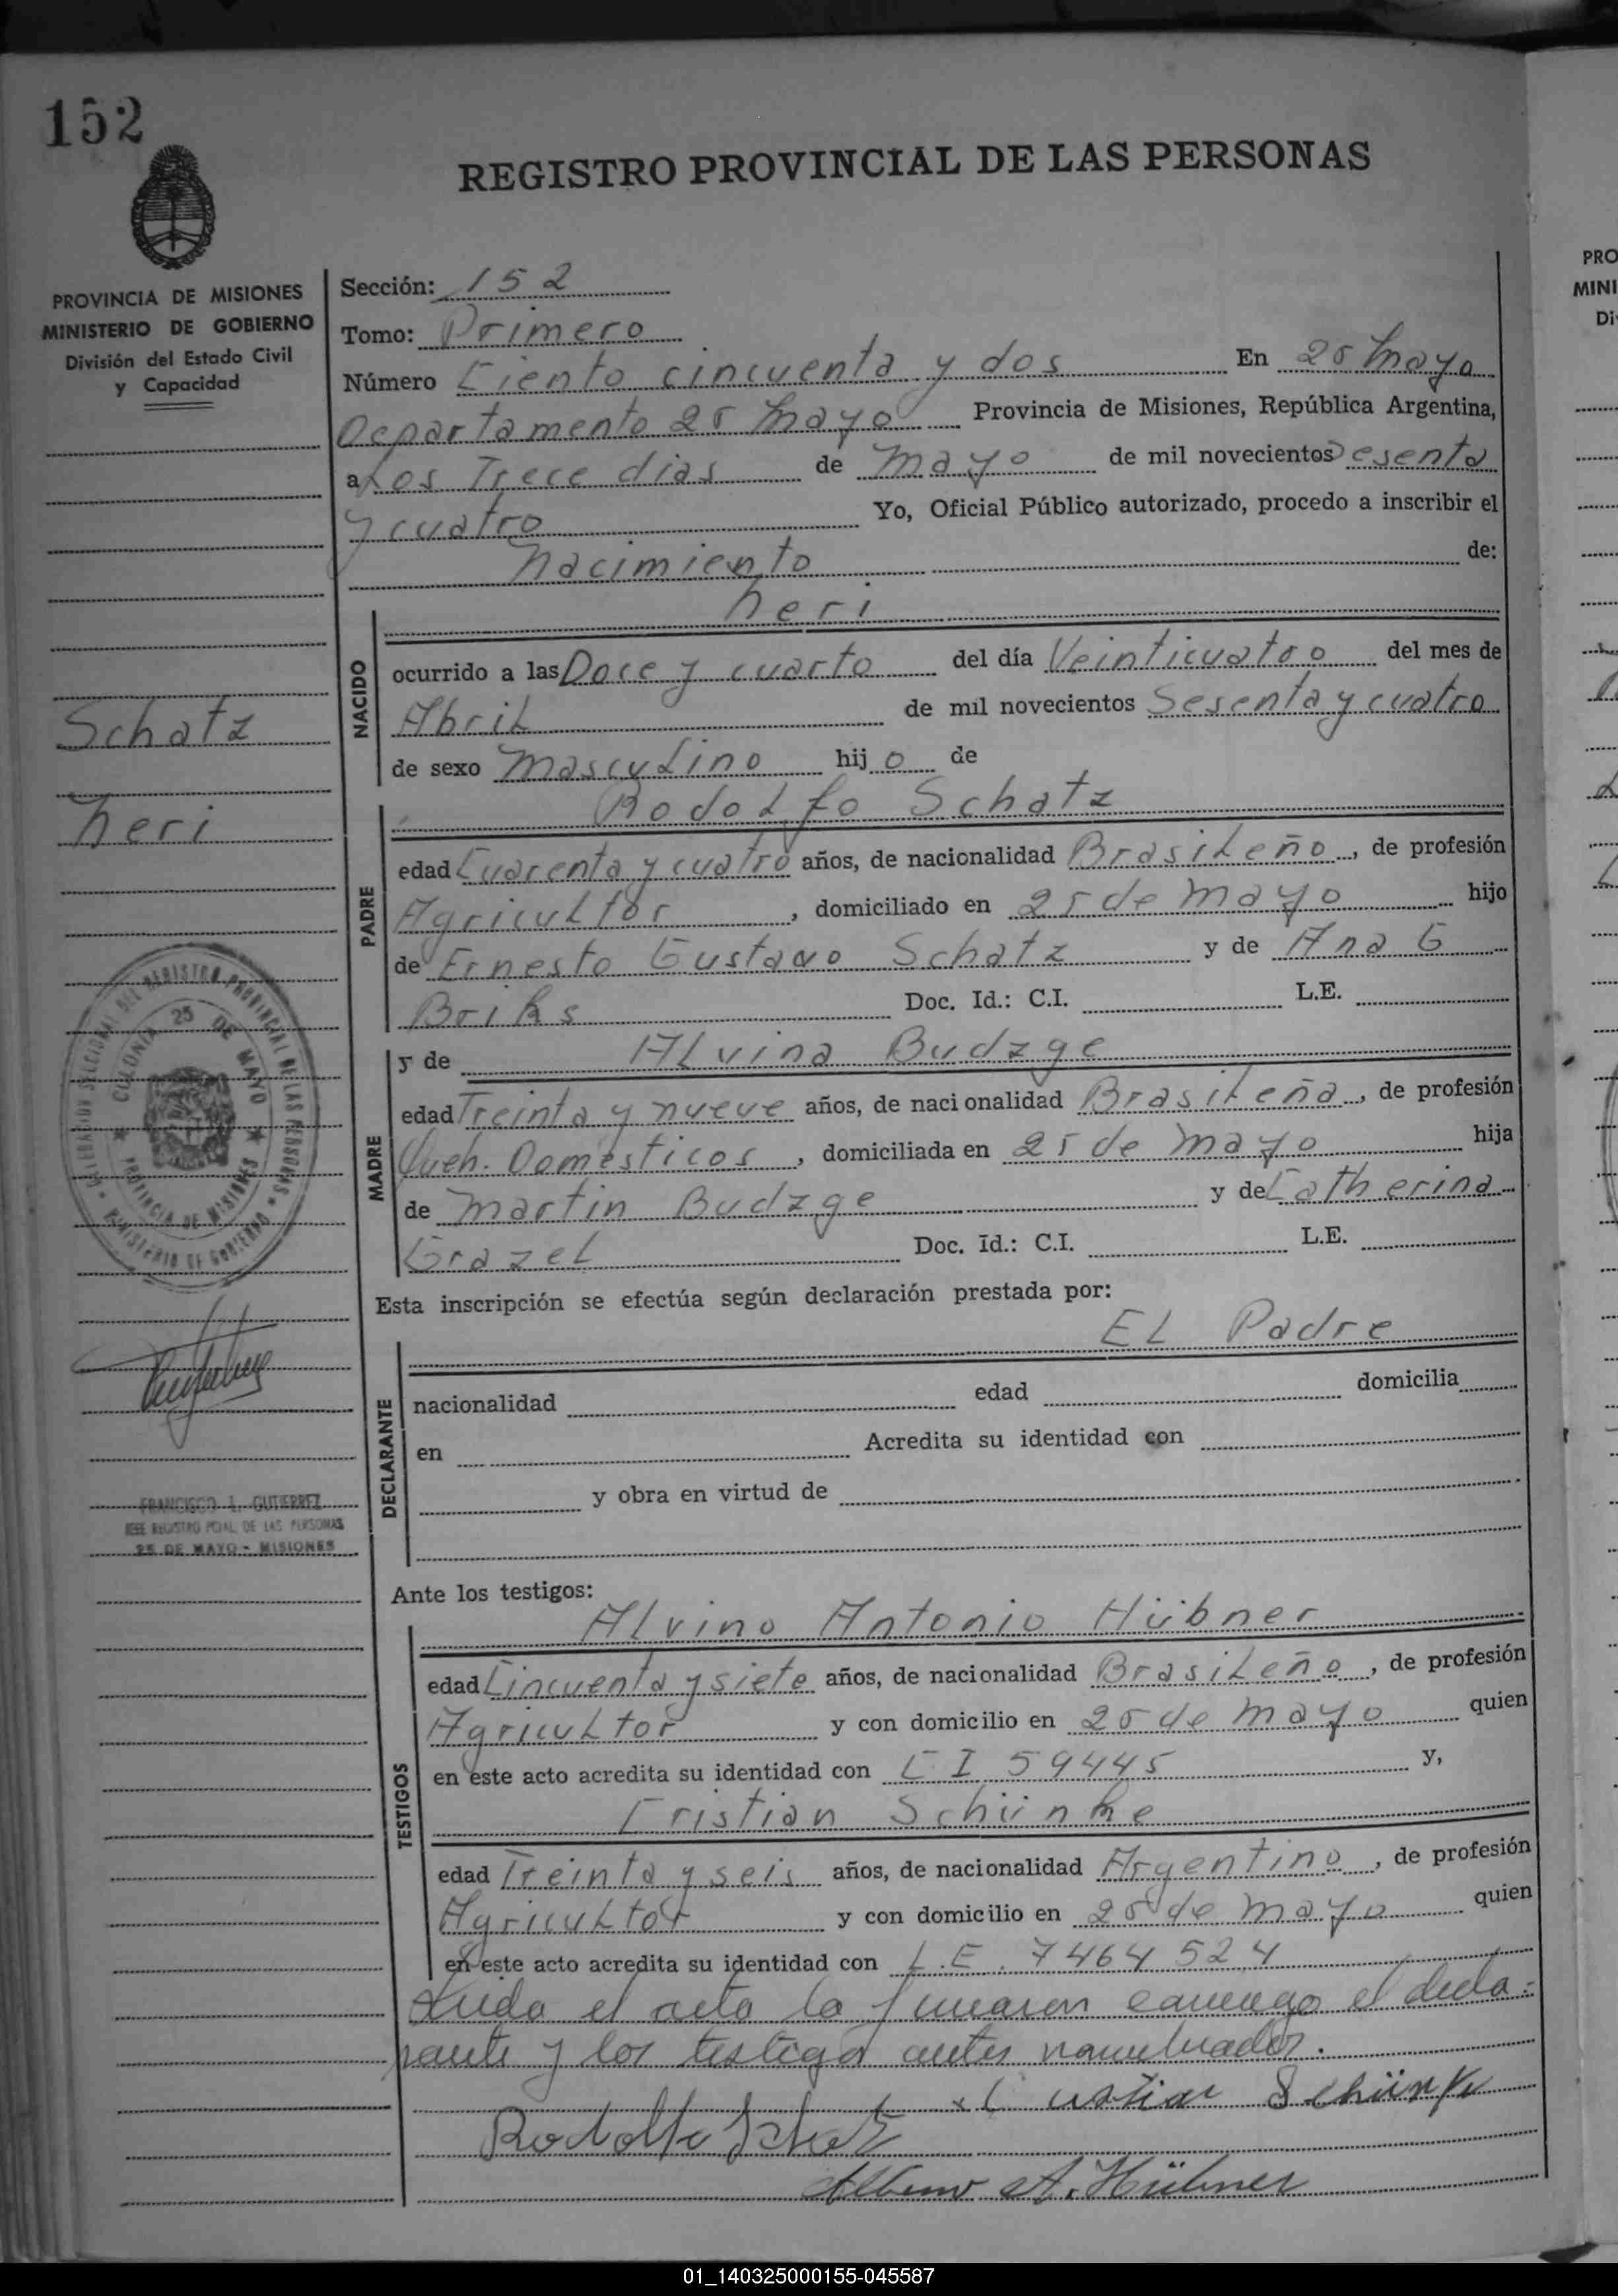 152
REGISTRO PROVINCIAL DE LAS PERSONAS
PROVINCIA DE MISIONES
MINISTERIO DE GOBIERNO
División del Estado Civil
y Capacidad
Sección: 152
Tomo: Primero
Número Ciento cincuenta y dos En 25 Mayo
Departamento 25 Mayo Provincia de Misiones, República Argentina,
a Los Trece dias de Mayo de mil novecientos Sesenta
y cuatro Yo, Oficial Público autorizado, procedo a inscribir el
Nacimiento de:
Neri
NACIDO
ocurrido a las Doce y cuarto del día Veinticuatro del mes de
Abril de mil novecientos Sesenta y cuatro
de sexo Masculino hijo de
Schatz
Neri
PADRE
Rodolfo Schatz
edad Cuarenta y cuatro años, de nacionalidad Brasileño, de profesión
Agricultor, domiciliado en 25 de Mayo hijo
de Ernesto Gustavo Schatz y de Ana G
Briks Doc. Id.: C.I. L.E.
MADRE
y de Alvina Budzge
edad Treinta y nueve años, de nacionalidad Brasileña, de profesión
Queh. Domésticos, domiciliada en 25 de Mayo hija
de Martin Budzge y de Catherina
Grazel Doc. Id.: C.I. L.E.
COLONIA 25 DE MAYO
PROVINCIA DE MISIONES
MINISTERIO DE GOBIERNO
Esta inscripción se efectúa según declaración prestada por:
El Padre
DECLARANTE
nacionalidad edad domicilia
en Acredita su identidad con
y obra en virtud de
FRANCISCO L. GUTIERREZ
JEFE REGISTRO PCIAL DE LAS PERSONAS
25 DE MAYO - MISIONES
Ante los testigos:
TESTIGOS
Alvino Antonio Hübner
edad Cincuenta y siete años, de nacionalidad Brasileño, de profesión
Agricultor y con domicilio en 25 de Mayo quien
en este acto acredita su identidad con C I 59445 y,
Cristian Schünke
edad Treinta y seis años, de nacionalidad Argentino, de profesión
Agricultor y con domicilio en 25 de Mayo quien
en este acto acredita su identidad con L.E. 7464524
Leida el acta la firmaron conmigo el decla-
rante y los testigos antes nombrados.
Cristian Schünke
Rodolfo Schatz
Albino A. Hübner
01_140325000155-045587